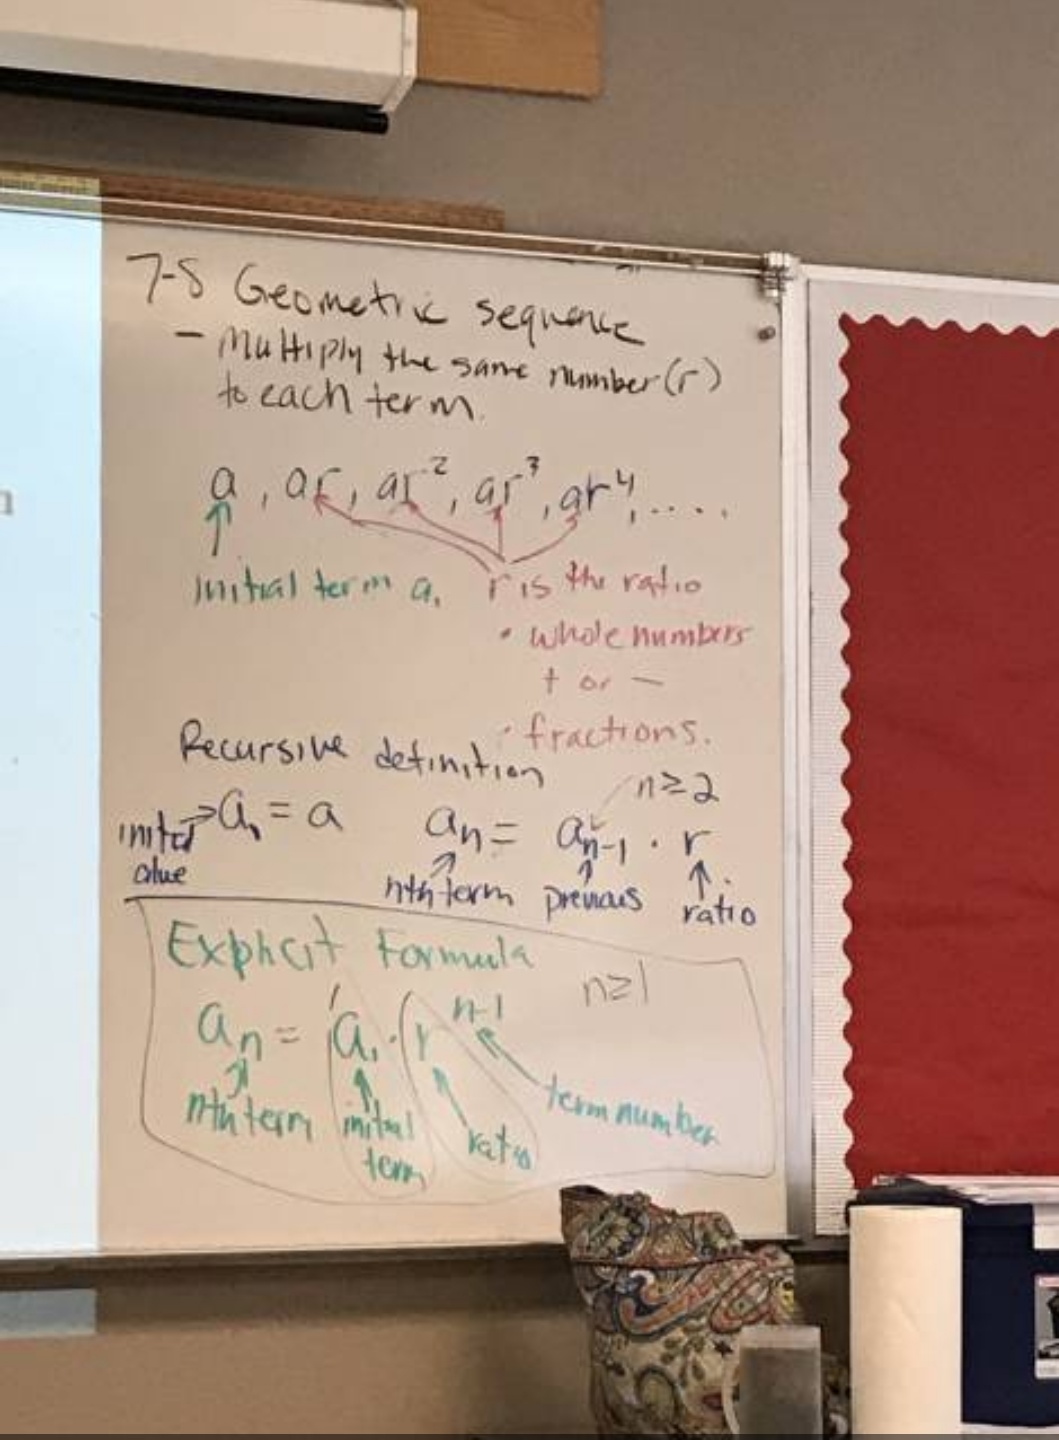 7-8 Geometric sequence
- Multiply the same number (r)
to each term.
a, ar, ar², ar³, ar⁴, ....
Initial term a₁ r is the ratio
• whole numbers
+ or −
• fractions.
Recursive definition
n≥2
a₁ = a aₙ = aₙ₋₁ · r
nth term previous ratio
Explicit Formula
n≥1
aₙ = a₁ · r^(n-1)
term number
nth term initial
term
ratio
n